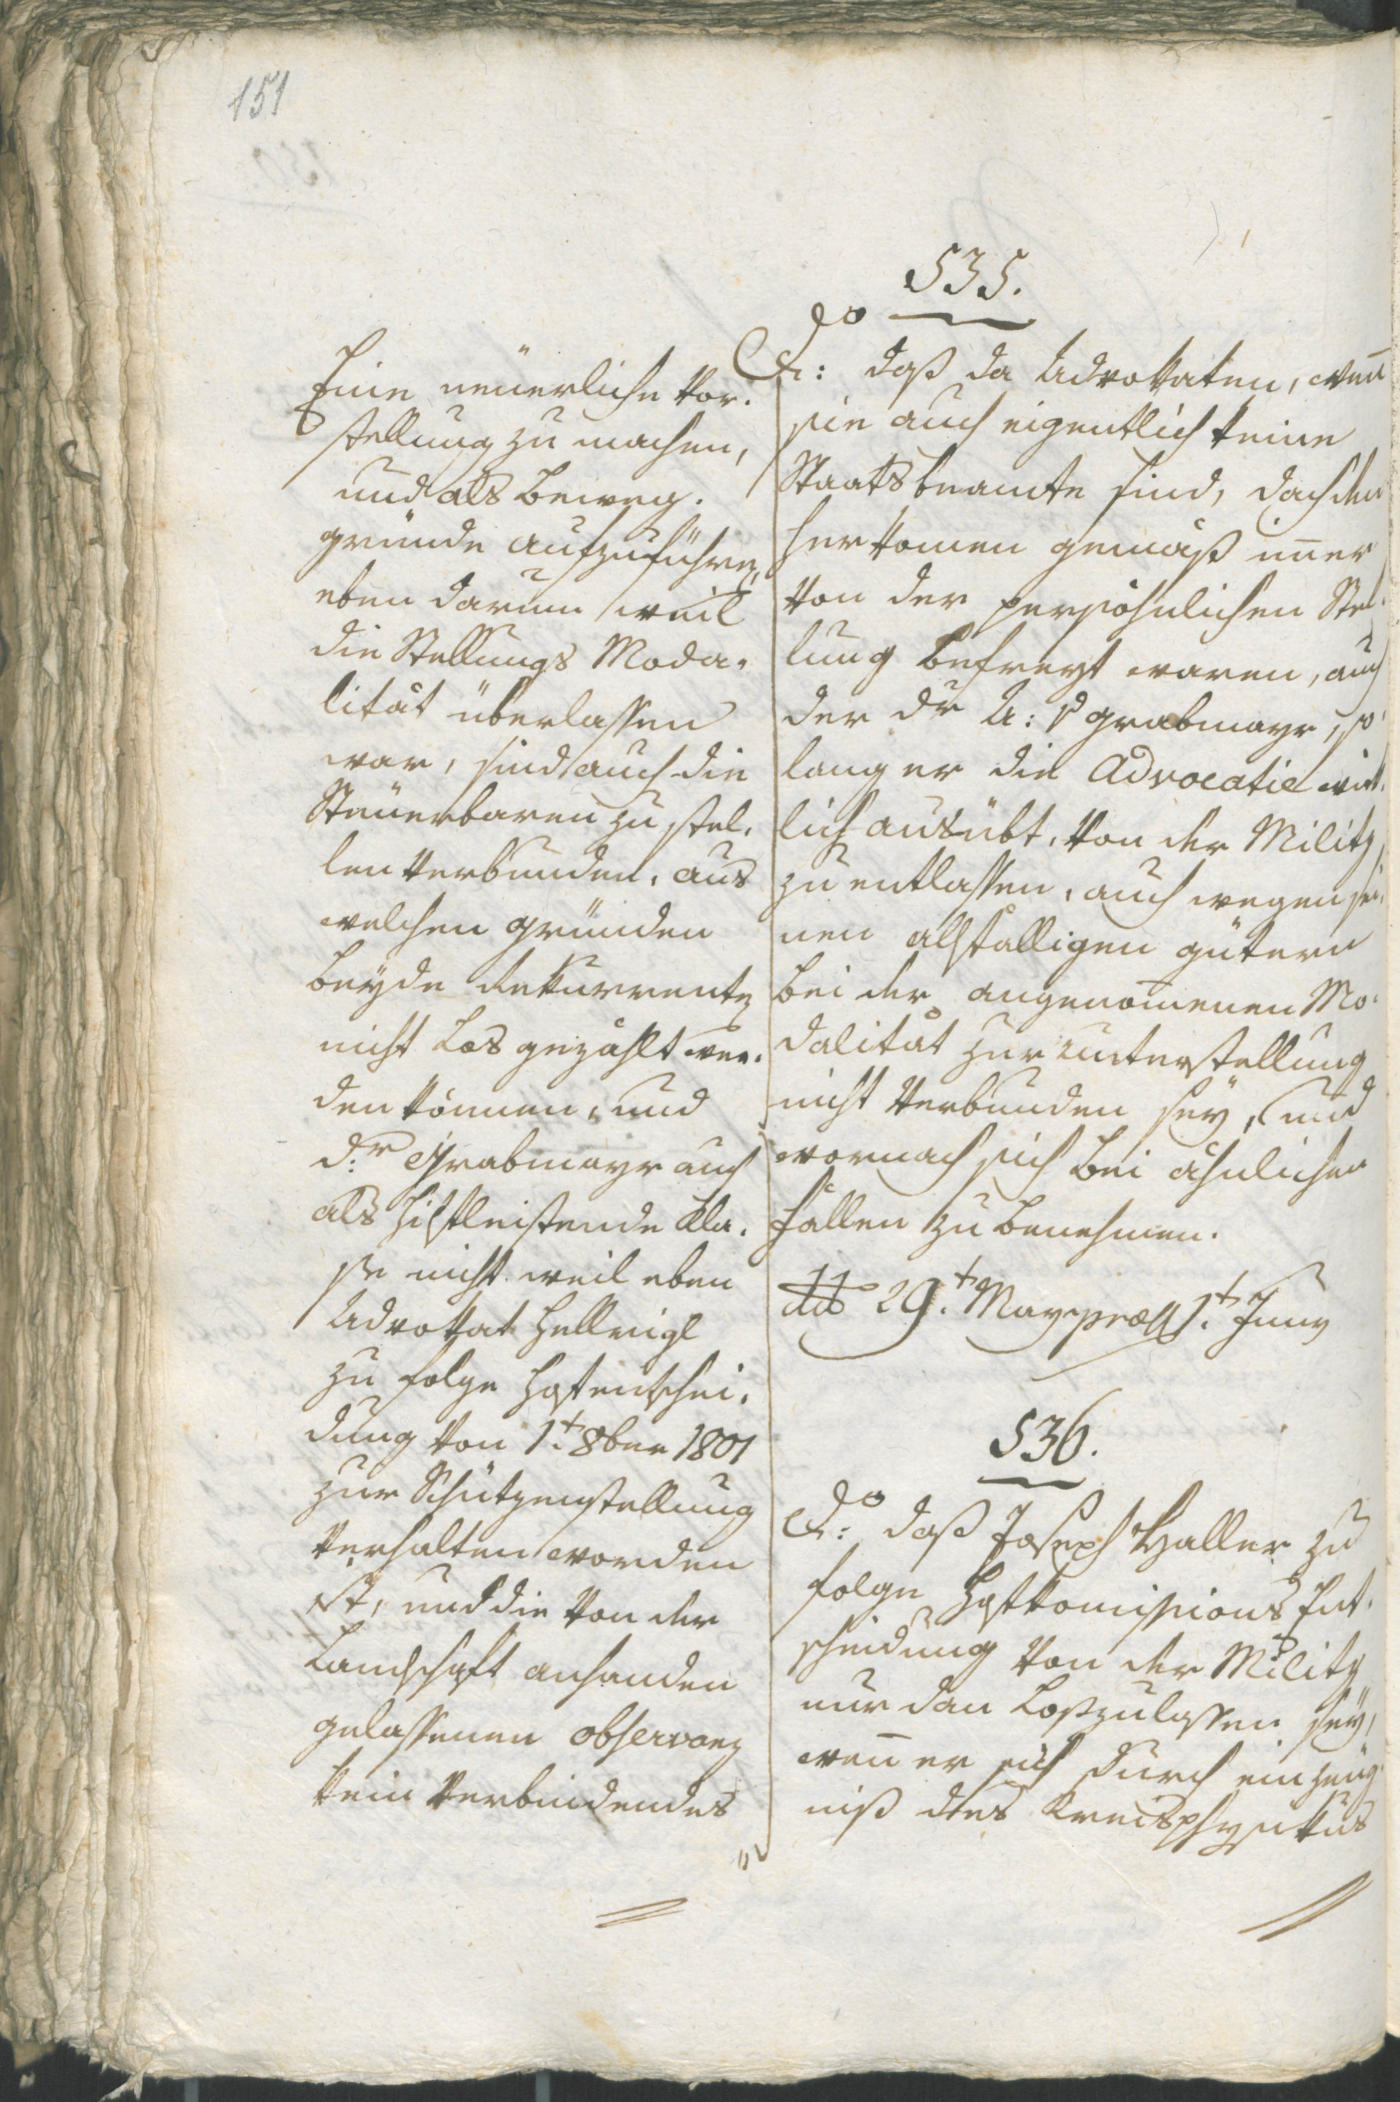 151
Eine neüerliche Vor.
stellung zu machen,
und als Beweg.
gründe aufzuführen,
eben darum weil
die Stellungs Moda.
lität überlassen
war, sind auch die
Steüerbaren zu stel.
len verbunden, aus
welchen gründen
beyde Rekurrenten
nicht Los gezählt wer.
den können, und
Dr. Grabmayr auch
als Hilfleistende Kla.
sse nicht weil eben
Advokat Hellrigl
zu folge Hofentschei.
dung von 1t. 8ber 1801
zur Schützenstellung
verhalten worden
ist, und die von der
Landschaft anhanden
gelassenen observanz
kein Verbindendes
535.
do
Daß da Advokaten, wenn
sie auch eigentlich keine
Staatsbeamte sind, doch dem
Herkomen gemäß immer
von der persöhnlichen Stel.
lung befreyt waren, auch
der Dr A: v Grabmayr, so
lang er die Advocatie wirk.
lich ausübt, von der Militz
zu entlassen, auch wegen sei.
nen allfälligen gütern
bei der angenomenen Mo.
dalität zur unterstellung
nicht verbunden sey, und
wornach sich bei ähnlichen
fällen zu benehmen.
ddo 29.t May præs 1.t Juny
536.
do
daß Joseph Haller zu
folge Hofkomissions Ent.
scheidung von der Militz
nur dan Loszulassen sey,
wenn er sich durch ein Zeüg.
niß des Kreisphysikus